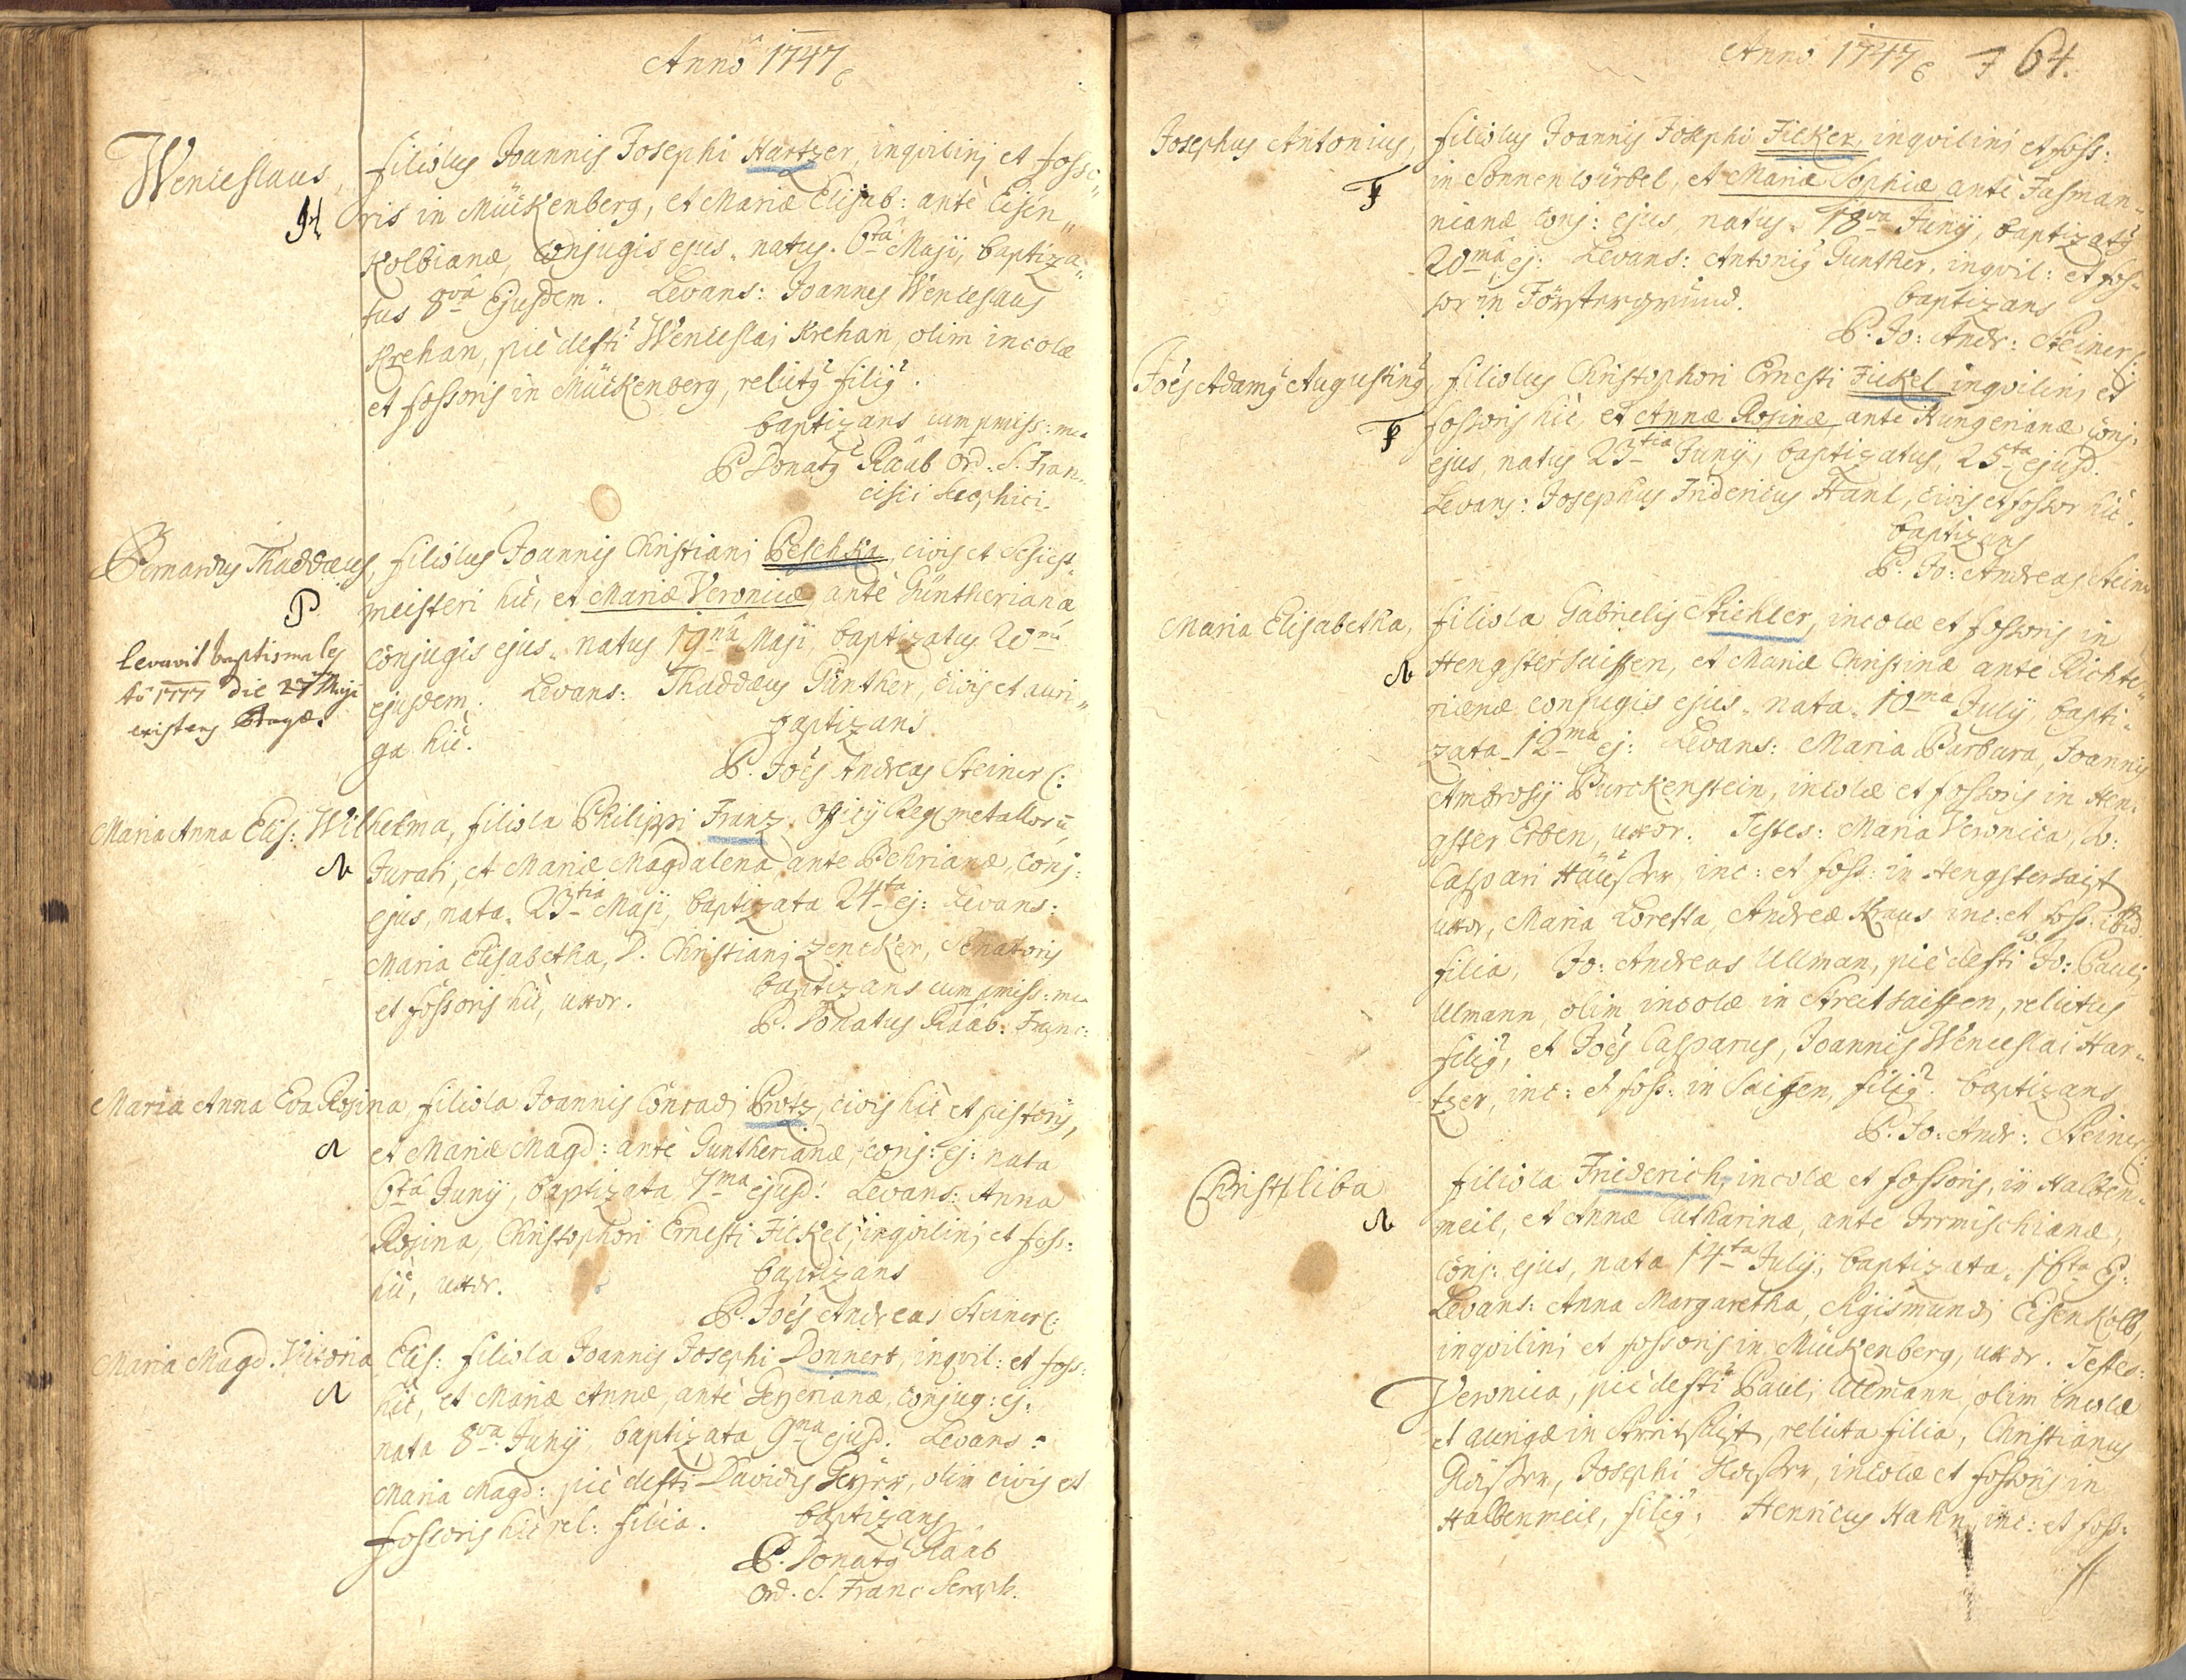 Anno 1747
Wenceslaus, filiolus Joannis Josephi Hartzer, inqvilini et fosso„
ris in Mückenberg, et Mariæ Elisab: antè Eisen„
kolbianæ, conjugis ejus, natus. 6ta Maji, baptiza„
tus 8va Ejusdem. Levans: Joannes Wenceslaus
Krehan, piè defti Wenceslai Krehan, olim incolæ
et fossoris in Mückenberg, relicty filiy.
baptizans cum pmiss: mea
P. Donaty Raab Ord. S. Fran„
cisci Seraphici.
Bernardus Thaddæus, filiolus Joannis Christiani Peschka, civis et
P
meisteri hic, et Mariæ Veronicæ, antè Güntherianæ
levavit baptismales
conjugis ejus, natus 19na Maji, baptizatus 20ma
die 27 Maji
ejusdem. Levans: Thaddæus Günther, civis et auri„
ga hic. baptizans
P. Joës Andreas Steiner C:
Maria Anna Elis: Wilhelma, filiola Philippi Franz Officij Reg: metallorū
Jurati, et Mariæ Magdalena, ante Behrianæ, conj:
ejus, nata 23tia Maji, baptizata 24ta ej: Levans:
Maria Elisabetha, D. Christiani Zencker, Senatoris
et fossoris hic, uxor. baptizans cum pmiss: mea
P. Donatus Raab: Franc:
Maria Anna Eva Rosina filiola Joannis Conradi Protz, civis hic et pistoris,
et Mariæ Magd: antè Guntherianæ, conj: ej: nata
6ta Junij, baptizata 7ma ejusd: Levans: Anna
Rosina, Christophori Ernesti Fickel, inqvilini et foss:
hic, uxor. baptizans
P. Joës Andreas Steiner C:
Maria Magd: Victoria Elis: filiola Joannis Josephi Donnert, inqvil: et foss:
hic, et Mariæ Annæ, antè Geyerianæ, conjug: ej:
nata 8va Junij baptizata 9na ejusd. Levans:
Maria Magd: piè defti Davidis Geyer, olim civis et
fossoris hic rel: filia. baptizans
P. Donaty Raab
Ord. S. Franc Seraph.
Anno 1747 64.
Josephus Antonius, filiolus Joannis Josephi Ficker, inqvilini et foss:
F
in Sonnenwürbel, et Mariæ Sophiæ antè Fasman„
nianæ conj: ejus, natus 18va Junij, baptizaty
20ma ej: Levans: Antoniy Gunther, inqvil: et fos„
sor in Förstergrund. baptizans
P. Jo: Andr: Steiner C:
Joës Adamy Augustiny, filiolus Christophori Ernesti Fickel inqvilini et
F
fossoris hic, et Annæ Rosinæ, ante Hungerianæ conj:
ejus, natus 23tia Junij, baptizatus, 25ta ejusd.
Levans: Josephus Fridericus Hanl, civis et fossor hic.
baptizans
P. Jo: Andreas Steiner
Maria Elisabetha, filiola Gabrielis Stichler, incolæ et fossoris in
Hengstersaiffen, et Mariæ Christinæ ante Richte„
rianæ conjugis ejus, nata 10ma Julij, bapti„
zata 12ma ej: Levans: Maria Barbara, Joannis
Ambrosij Purckenstein, incolæ et fossoris in Hen„
gster Erben, uxor. Testes: Maria Veronica, Jo:
Caspari Häußer inc: et foss: in Hengstersaift
uxor, Maria Loretta, Andreæ Kraus inc: et foss: ibid.
filia, Jo: Andreas Ullman, piè defti Jo: Pauli
Ulmann, olim incolæ in Streitsaiffen, relictus
filiy, et Joës Casparus, Joannis Wenceslai Har„
tzer, inc: et foss: in Saiffen, filiy. baptizans
P. Jo: Andr: Steiner C:
Christliba filiola Friderich, incolæ et fossoris, in Halben„
meil, et Annæ Catharinæ, ante Irrmischianæ,
conj: ejus, nata 14ta Julij, baptizata. 16ta Ej:
Levans: Anna Margaretha, Sigismundi Eisenkolb,
inqvilini et fossoris in Mückenberg, uxor. Testes:
Veronica, piè defti Pauli Ullmann, olim incolæ
et aurigæ in Streitsaift, relicta filia, Christianus
Josephi incolæ et fossoris in
Halbenmeil, filiy, Henricus Hahn, inc: et foss: